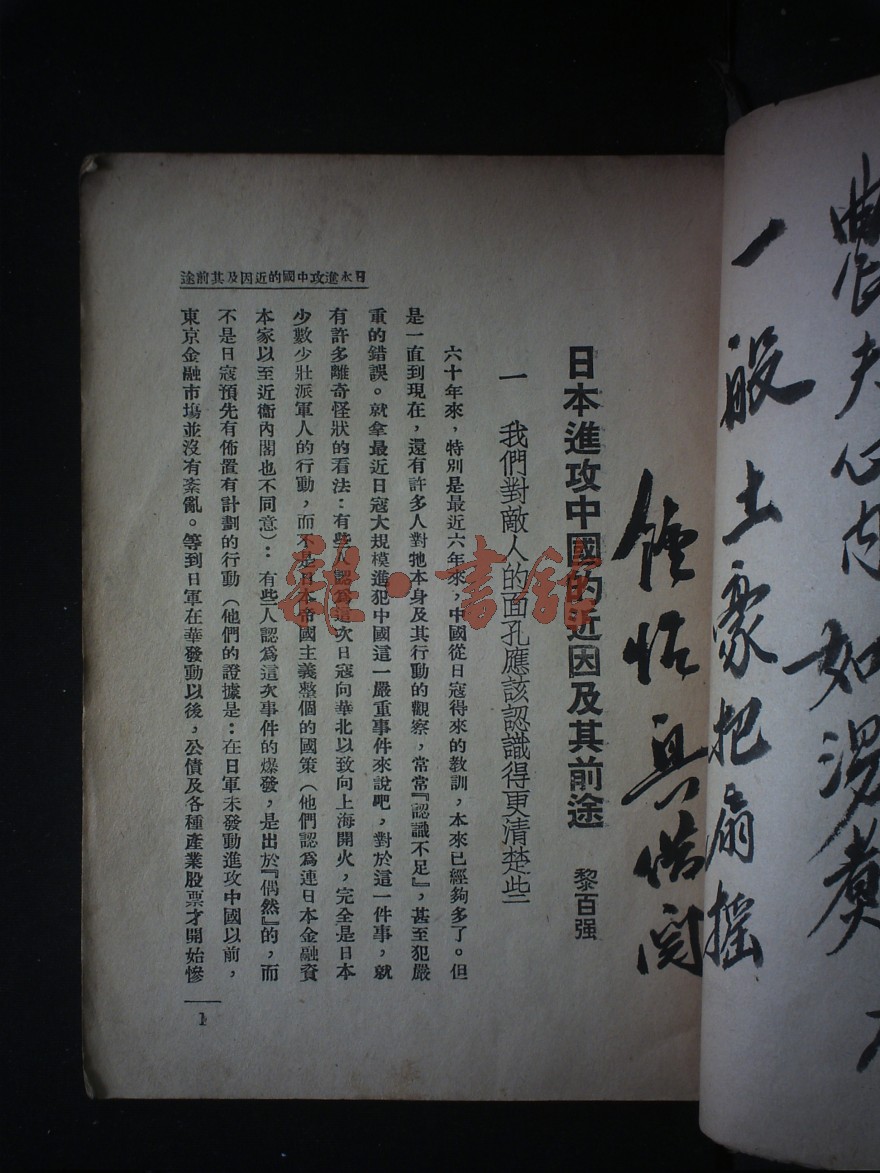 農夫心內如湯煮
一般土豪把扇搖
日本進攻中國的近因及其前途
日本進攻中國的近因及其前途
黎百强
一 我們對敵人的面孔應該認識得更清楚些
六十年來，特別是最近六年來，中國從日寇得來的教訓，本來已經夠多了。但
是一直到現在，還有許多人對牠本身及其行動的觀察，常常『認識不足』，甚至犯嚴
重的錯誤。就拿最近日寇大規模進犯中國這一嚴重事件來說吧，對於這一件事，就
有許多離奇怪狀的看法：有些人認爲這次日寇向華北以致向上海開火，完全是日本
少數少壯派軍人的行動，而不是日本帝國主義整個的國策（他們認爲連日本金融資
本家以至近衛內閣也不同意）：有些人認爲這次事件的爆發，是出於『偶然』的，而
不是日寇預先有佈置有計劃的行動（他們的證據是：在日軍未發動進攻中國以前，
東京金融市塲並沒有紊亂。等到日軍在華發動以後，公債及各種產業股票才開始慘
1
雜·書館